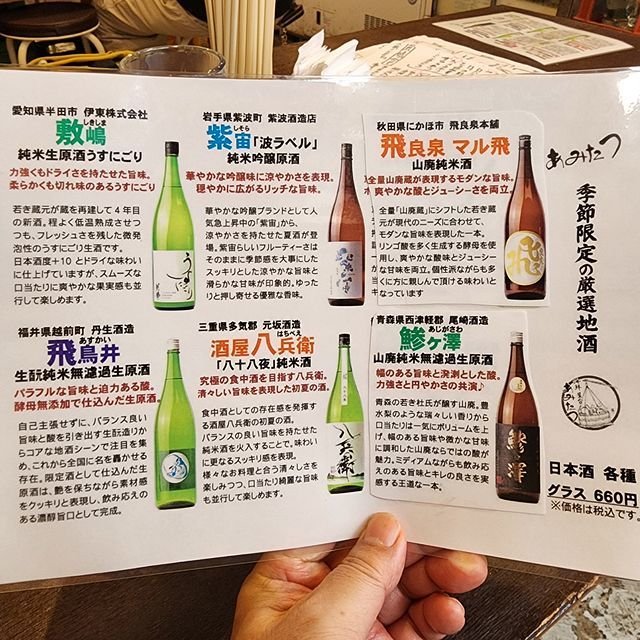 愛知県半田市 伊東株式会社
しきしま
敷嶋
純米生原酒うすにごり
力強くもドライさを持たせた旨味。
柔らかくも切れ味のあるうすにごり
若き蔵元が蔵を再建して4年目
の新酒。程よく低温熟成させつ
つも、フレッシュさを残した微発
泡性のうすにごり生酒です。
日本酒度+10とドライな味わい
に仕上げていますが、スムーズな
口当たりに爽やかな果実感も並
行して楽しめます。
岩手県紫波町 紫波酒造店
しそら
紫宙「波ラベル」
純米吟醸原酒
華やかな吟醸味に涼やかさを表現。
穏やかに広がるリッチな旨味。
華やかな吟醸ブランドとして人
気急上昇中の「紫宙」から、
涼やかさを持たせた夏酒が登
場。紫宙らしいフルーティーさは
そのままに季節感を大事にした
スッキリとした涼やかな旨味と
滑らかな甘味が印象的。ゆった
りと押し寄せる優雅な香味。
秋田県にかほ市 飛良泉本舗
飛良泉 マル飛
山廃純米酒
全量山廃蔵が表現するモダンな旨味。
爽やかな酸とジューシーさを両立。
全量「山廃蔵」にシフトした若き蔵
元が現代のニーズに合わせて、モ
ダンな旨味を表現した一本。
リンゴ酸を多く生成する酵母を使
用し、爽やかな酸とジューシーな
な甘味を両立。個性派ながらも多
くに方に親しんで頂ける味わいと
なっています
福井県越前町 丹生酒造
あすかい
飛鳥井
生酛純米無濾過生原酒
パラフルな旨味と迫力ある酸。
酵母無添加で仕込んだ生原酒。
自己主張せずに、バランス良い
旨味と酸を引き出す生酛造りか
らコアな地酒シーンで注目を集
め、これから全国に名を轟かせる
存在。限定酒として仕込んだ生
原酒は、艶を保ちながら素材感
をクッキリと表現し、飲み応えの
ある濃醇旨口として完成。
三重県多気郡 元坂酒造
はちべえ
酒屋八兵衛
「八十八夜」純米酒
究極の食中酒を目指す八兵衛。
清々しい旨味を表現した初夏の酒。
食中酒としての存在感を発揮す
る酒屋八兵衛の初夏の酒。
バランスの良い旨味を持たせた
純米酒を火入することで。味わ
いに更なるスッキリ感を表現。
様々なお料理と合う清々しさを
楽しみつつ、口当たり綺麗な旨味
も並行して楽しめます。
八兵衛
青森県西津軽郡 尾崎酒造
あじがさわ
鰺ヶ澤
山廃純米無濾過生原酒
幅のある旨味と溌溂とした酸。
力強さと円やかさの共演♪
青森の若き杜氏が醸す山廃。豊
水梨のような瑞々しい香りから
口当たりは一気にボリュームを上
げ、幅のある旨味や微かな甘味
に調和した山廃ならではの酸が
魅力。ミディアムながらも飲み応
えのある旨味とキレの良さを実
感する王道な一本。
鰺ヶ澤
あみたつ
季節限定の厳選地酒
あみたつ
日本酒 各種
グラス 660円
※価格は税込です。